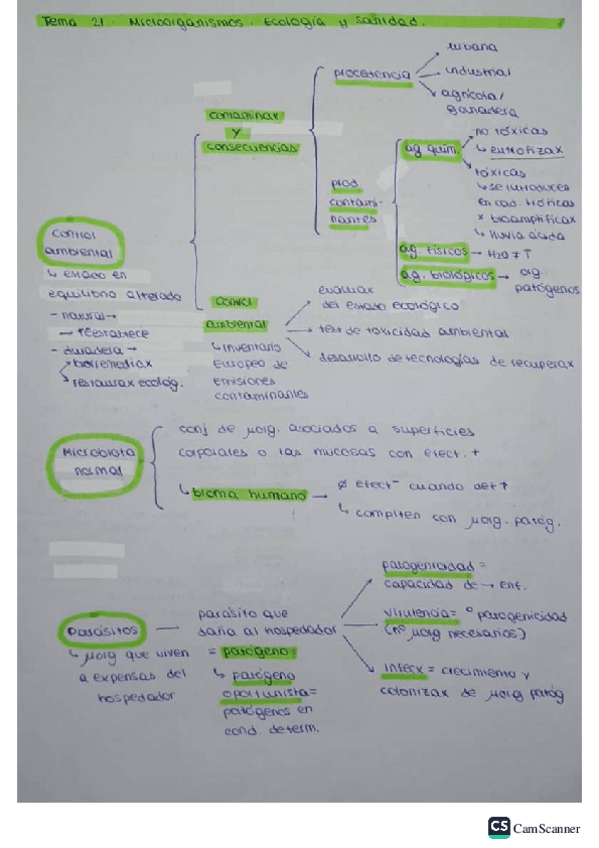 Tema 21. Microorganismos. Ecología y sanidad.
contaminax
y
consecuencias
procedencia
urbana
industrial
agrícola/
ganadera
prod
contami-
nantes
ag quím.
no tóxicas
↳ eutrofizax
tóxicas
↳ se introduces
en cad. tróficas
x bioamplificax
↳ lluvia ácida
ag. físicos → H2O ≠ T
ag. biológicos → ag.
patógenos
Control
ambiental
↳ estado en
equilibrio alterado
- natural →
→ reestablece
- duradera →
↳ biorremediax
↳ restaurax ecológ.
control
ambiental
↳ inventario
europeo de
emisiones
contaminantes
evaluax
del estado ecológico
test de toxicidad ambiental
desarrollo de tecnologías de recuperax
Microbiota
normal
conj de μorg. asociados a superficies
corporales o las mucosas con efect. +
↳ bioma humano →
∅ efect⁻ cuando def ↑
↳ compiten con μorg. patóg.
Parásitos
↳ μorg que viven
a expensas del
hospedador
parásito que
daña al hospedador
= patógeno
↳ patógeno
oportunista =
patógenos en
cond. determ.
patogenicidad =
capacidad de → enf.
virulencia = º patogenicidad
(nº μorg necesarios)
infecx = crecimiento y
colonizax de μorg patóg
CS CamScanner